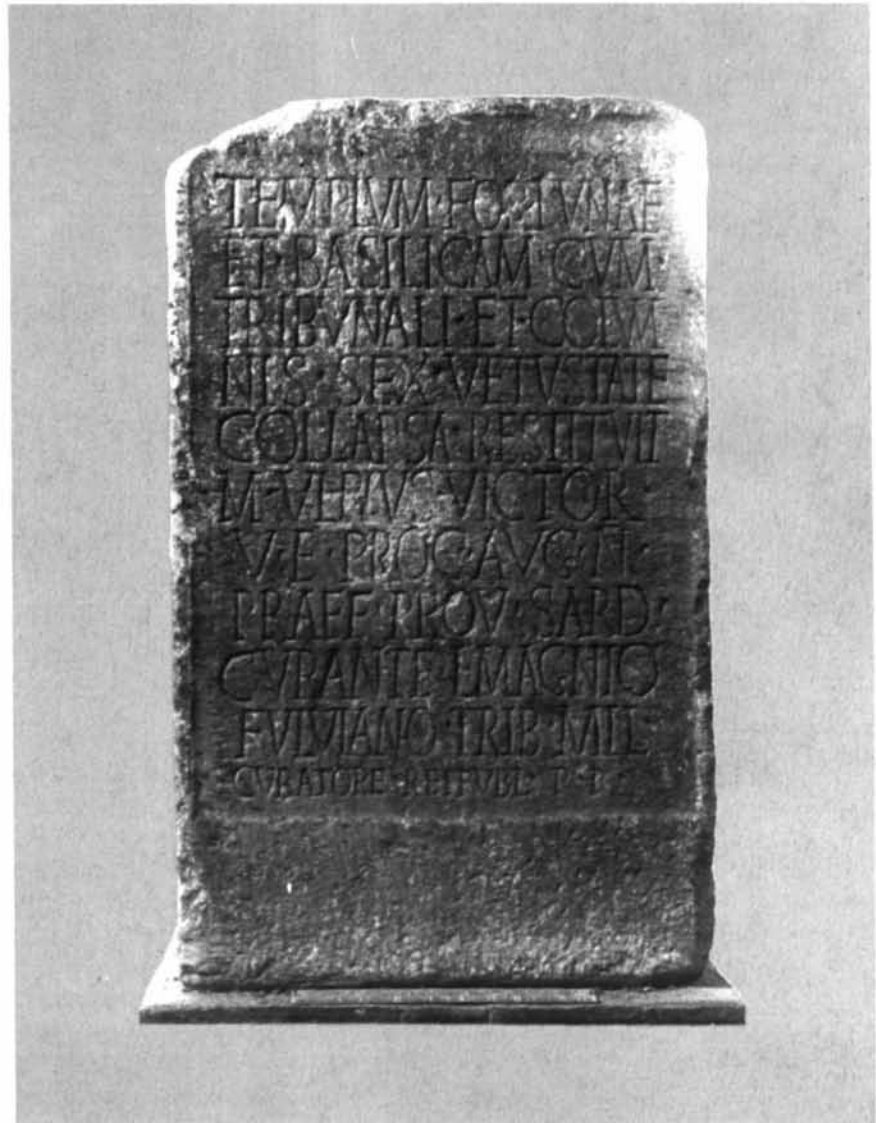 TEMPLVM·FORTVNAE
ET·BASILICAM·CVM·
TRIBVNALI·ET·COLVM
NIS·SEX·VETVSTATE
COLLAPSA·RESTITVIT
M·VLPIVS·VICTOR·
V·E·PROC·AVG·N·
PRAEF·PROV·SARD·
CVRANTE·L·MAGNIO
FVLVIANO·TRIB·MIL·
CVRATORE·REI PVBL·P·P·